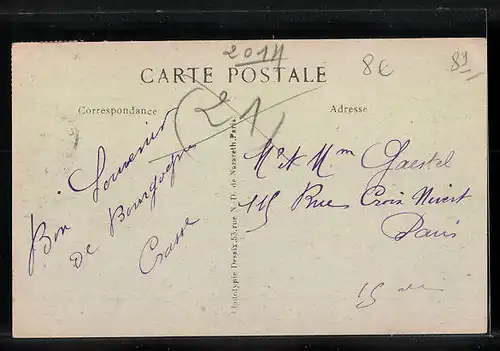 2014
8€
89
CARTE POSTALE
Correspondance
Adresse
21
Bon Souvenir
de Bourgogne
Phototypie Desaix, 53, rue N.-D. de Nazareth, Paris.
Mr et Mme Gaestel
115 Rue Croix Nivert
Paris
15